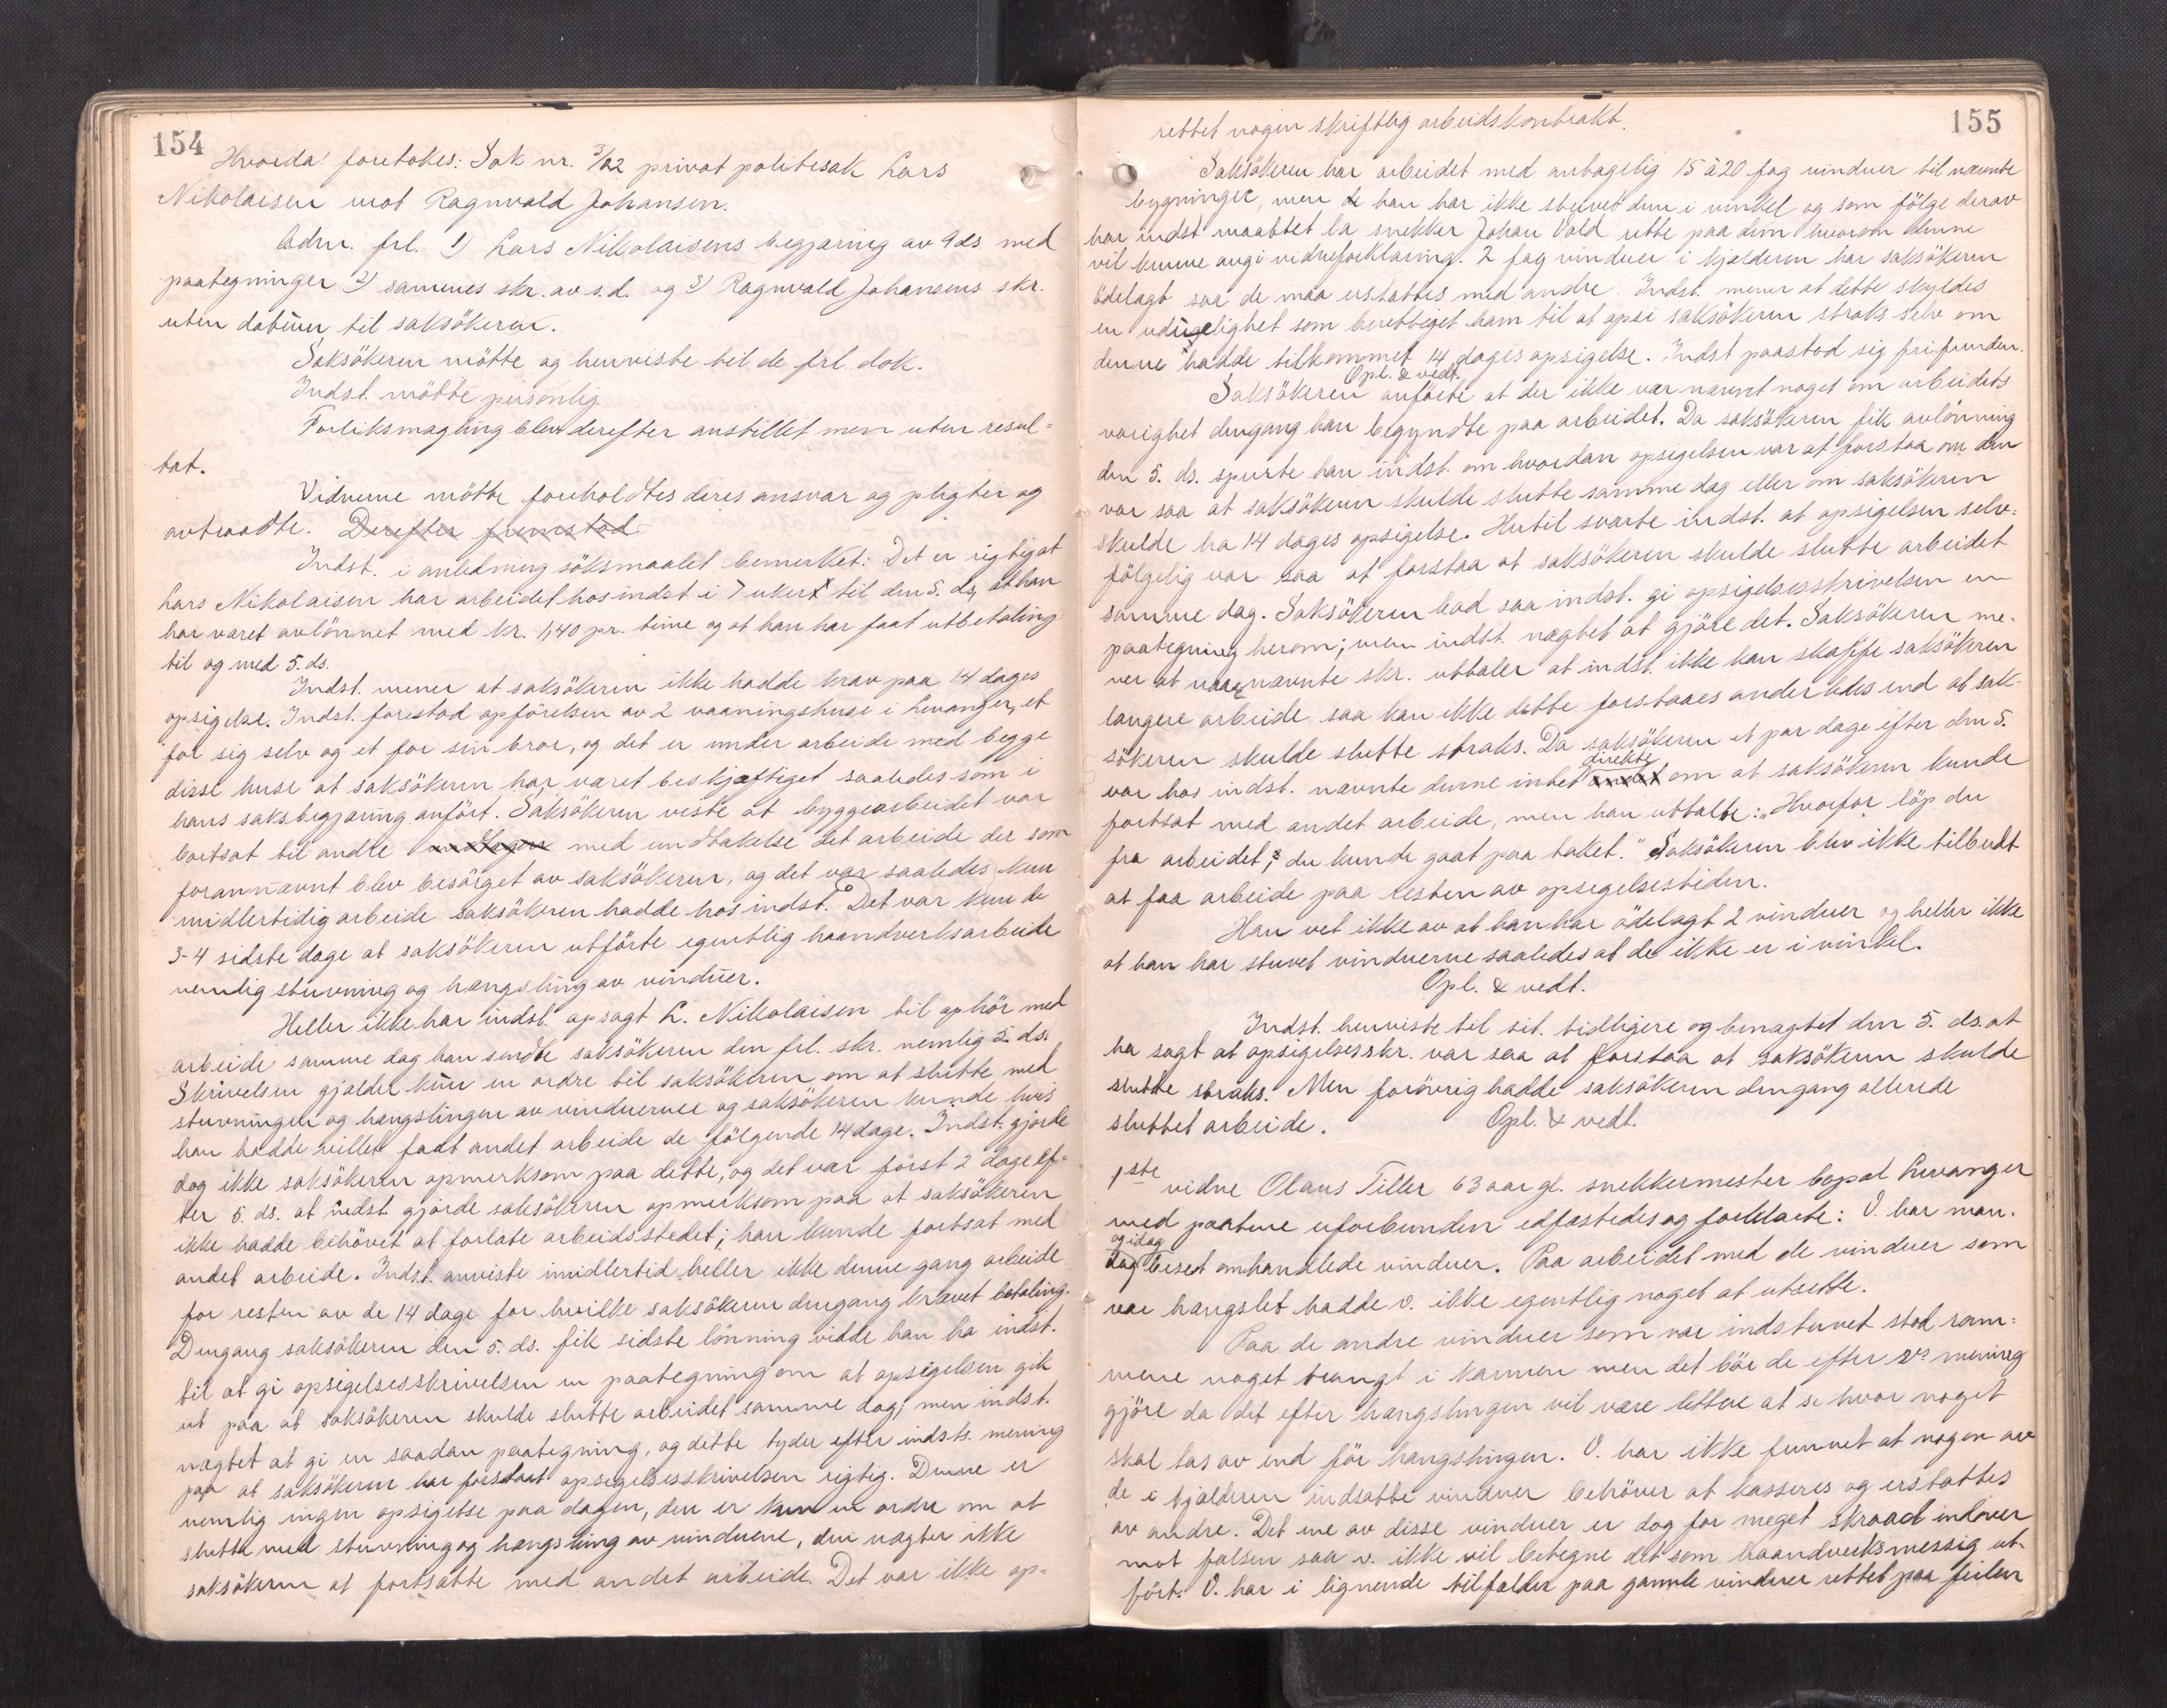 154
Hvorda! foretokes: Sak nr. 3/22 privat politisak Lars
Nikolaisen mot Ragnvald Johansen.
Adm. frl. 1) Lars Nikolaisens begjæring av 9 ds med
paategninger 2) sammes skr. av s.d. og 3) Ragnvald Johansens skr.
uten datum til saksökeren.
Saksökeren mötte og henviste til de frl. dok.
Indst. mötte personlig.
Forliksmægling blev derefter anstillet men uten resul=
tat.
Vidnerne mötte foreholdtes deres ansvar og pligter og
avtraadte. Derefter fremstod
Indst. i anledning söksmaalet bemerket: Det er rigtig at
Lars Nikolaisen har arbeidet hos indst i 7 uker til den 5. ds, at han
har været avlönnet med kr. 1,40 pr. time og at han har faat utbetaling
til og med 5. ds.
Indst. mener at saksökeren ikke hadde krav paa 14 dages
opsigelse. Indst. forestod opförelsen av 2 vaaningshuse i Levanger, et
for sig selv og et for sin bror, og det er under arbeide med begge
disse huse at saksökeren har været beskjæftiget saaledes som i
hans saksbegjæring anfört. Saksökeren viste at byggearbeidet var
bortsat til andre med undtakelse det arbeide der som
forannævnt blev besörget av saksökeren, og det var saaledes kun
midlertidig arbeide saksökeren hadde hos indst. Det var kun de
3-4 sidste dage at saksökeren utförte egentlig haandverksarbeide
nemlig stuvning og hængsling av vinduer.
Heller ikke har indst. opsagt L. Nikolaisen til ophör med
arbeide samme dag han sendte saksökeren den frl. skr. nemlig 5. ds.
Skrivelsen gjælder kun en ordre til saksökeren om at slutte med
stuvningen og hængslingen av vinduerne og saksökeren kunde hvis
han hadde villet faat andet arbeide de fölgende 14 dage. Indst. gjorde
dog ikke saksökeren opmerksom paa dette, og det var först 2 dage ef=
ter 5. ds. at indst gjorde saksökeren opmerksom paa at saksökeren
ikke hadde behövet at forlate arbeidsstedet; han kunde fortsat med
andet arbeide. Indst. anviste imidlertid heller ikke denne gang arbeide
for resten av de 14 dage for hvilke saksökeren dengang krævet betaling.
Dengang saksökeren den 5. ds. fik sidste lönning vidde han ha indst.
til at gi opsigelsesskrivelsen en paategning om at opsigelsen gik
ut paa at saksökeren skulde slutte arbeidet samme dag; men indst.
nægtet at gi en saadan paategning, og dette tyder efter indsts. mening
paa at saksökeren har forstaat opsigelsesskrivelsen rigtig. Denne er
nemlig ingen opsigelse paa dagen, den er kun en ordre om at
slutte med stuvning og hængsling av vinduerne, den nægter ikke
saksökeren at fortsætte med andet arbeide. Det var ikke op=
155
rettet nogen skriftlig arbeidskontrakt.
Saksökeren har arbeidet med antagelig 15 à 20 fag vinduer til nævnte
bygninger, men han har ikke stuvet dem i vinkel og som fölge derav
har indst maattet la snekker Johan Vold rette paa dem hvorom denne
vil kunne avgi vidneforklaring. 2 fag vinduer i kjælderen har saksökeren
ödelagt saa de maa erstattes med andre. Indst. mener at dette skyldes
en udugelighet som berettiget ham til at opsi saksökeren straks selv om
denne hadde tilkommet 14 dages opsigelse. Indst paastod sig frifunden.
Opl. & vedt.
Saksökeren anförte at der ikke var nævnt noget om arbeidets
varighet dengang han begyndte paa arbeidet. Da saksökeren fik avlönning
den 5. ds. spurte han indst. om hvordan opsigelsen var at forstaa om den
var saa at saksökeren skulde slutte samme dag eller om saksökeren
skulde ha 14 dages opsigelse. Hertil svarte indst. at opsigelsen selv=
fölgelig var saa at forstaa at saksökeren skulde slutte arbeidet
samme dag. Saksökeren bad saa indst. gi opsigelsesskrivelsen en
paategning herom; men indst. nægtet at gjöre det. Saksökeren me=
ner at naar nævnte skr. uttaler at indst. ikke kan skaffe saksökeren
længere arbeide saa kan ikke dette forstaaes anderledes end at sak=
sökeren skulde slutte straks. Da saksökeren et par dage efter den 5.
direkte
var hos indst. nævnte denne intet om at saksökeren kunde
fortsat med andet arbeide, men han uttalte: „Hvorfor löp du
fra arbeidet, du kunde gaat paa taket." Saksökeren blev ikke tilbudt
at faa arbeide paa resten av opsigelsestiden.
Han vet ikke av at han har ödelagt 2 vinduer og heller ikke
at han har stuvet vinduerne saaledes at de ikke er i vinkel.
Opl. & vedt.
Indst. henviste til sit tidligere og benægtet den 5. ds. at
ha sagt at opsigelsesskr. var saa at forstaa at saksökeren skulde
slutte straks. Men forövrig hadde saksökeren dengang allerede
sluttet arbeide. Opl. & vedt.
1ste vidne Olaus Tiller 63 aar gl. snekkermester bopæl Levanger
med parterne uforbunden edfæstedes og forklarte: V. har man=
og idag
dag beset omhandlede vinduer. Paa arbeidet med de vinduer som
var hængslet hadde v. ikke egentlig noget at utsette.
Paa de andre vinduer som var indstuvet stod ram=
mene noget trangt i karmen men det bör de efter vs mening
gjöre da det efter hængslingen vil være lettere at se hvor noget
skal tas av end för hængslingen. V. har ikke funnet at nogen av
de i kjælderen indsatte vinduer behöver at kasseres og erstattes
av andre. Det ene av disse vinduer er dog for meget skraad indover
mot falsen saa v. ikke vil betegne det som haandverksmessig ut=
fört. V. har i lignende tilfælder paa gamle vinduer rettet paa feilen